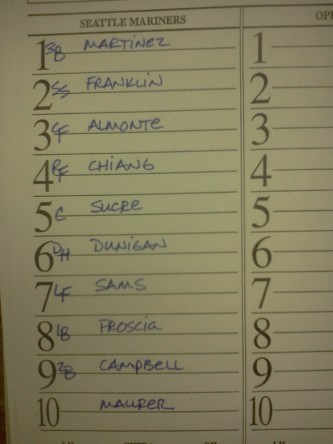 SEATTLE MARINERS OP
1 3B MARTINEZ 1
2 SS FRANKLIN 2
3 CF ALMONTE 3
4 RF CHIANG 4
5 C SUCRE 5
6 DH DUNIGAN 6
7 LF SAMS 7
8 1B PROSCIA 8
9 2B CAMPBELL 9
10 MAURER 10